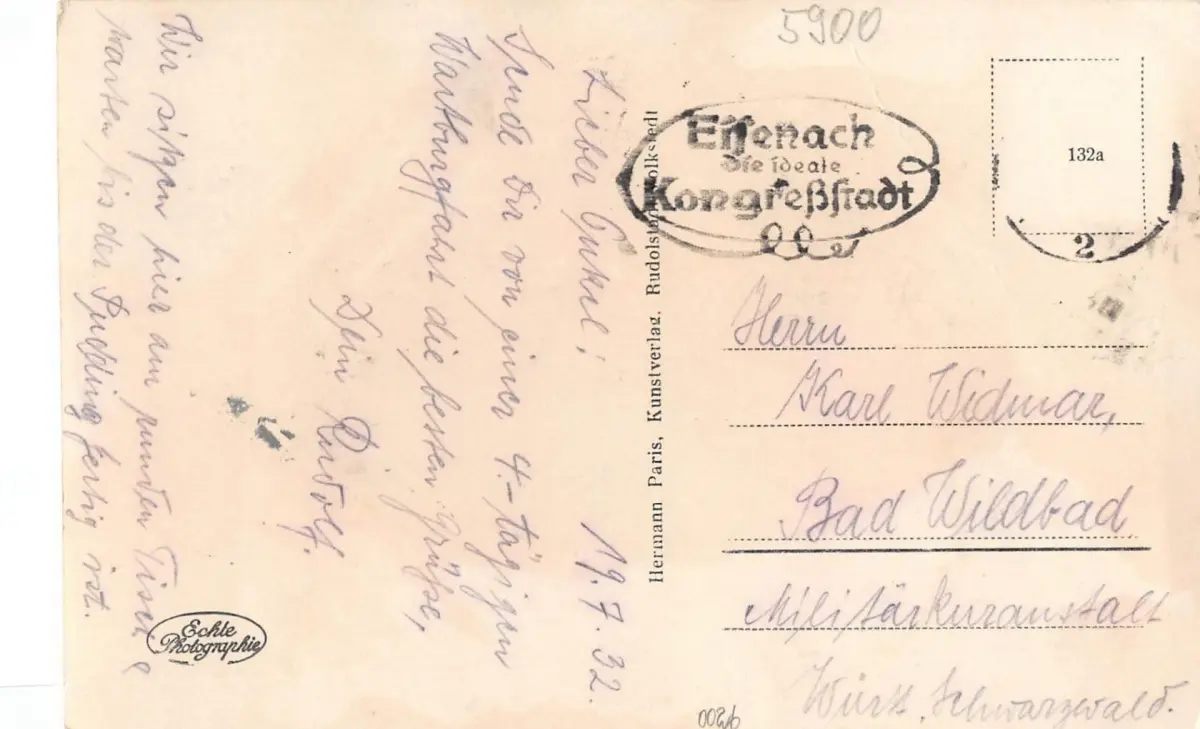 5900
Lieber Onkel! 19.7.32.
Sende Dir von einer 4.-tägigen
Wartburgfahrt die besten Grüße,
Dein Rudolf.
Wir sitzen hier am runden Tisch u
warten bis der Pudding fertig ist.
Echte
Photographie
Hermann Paris, Kunstverlag, Rudolstadt-Volkstedt
Eisenach
die ideale
Kongreßstadt
132a
2
Herrn
Karl Widmar,
Bad Wildbad
Militärkuranstalt
Württ. Schwarzwald.